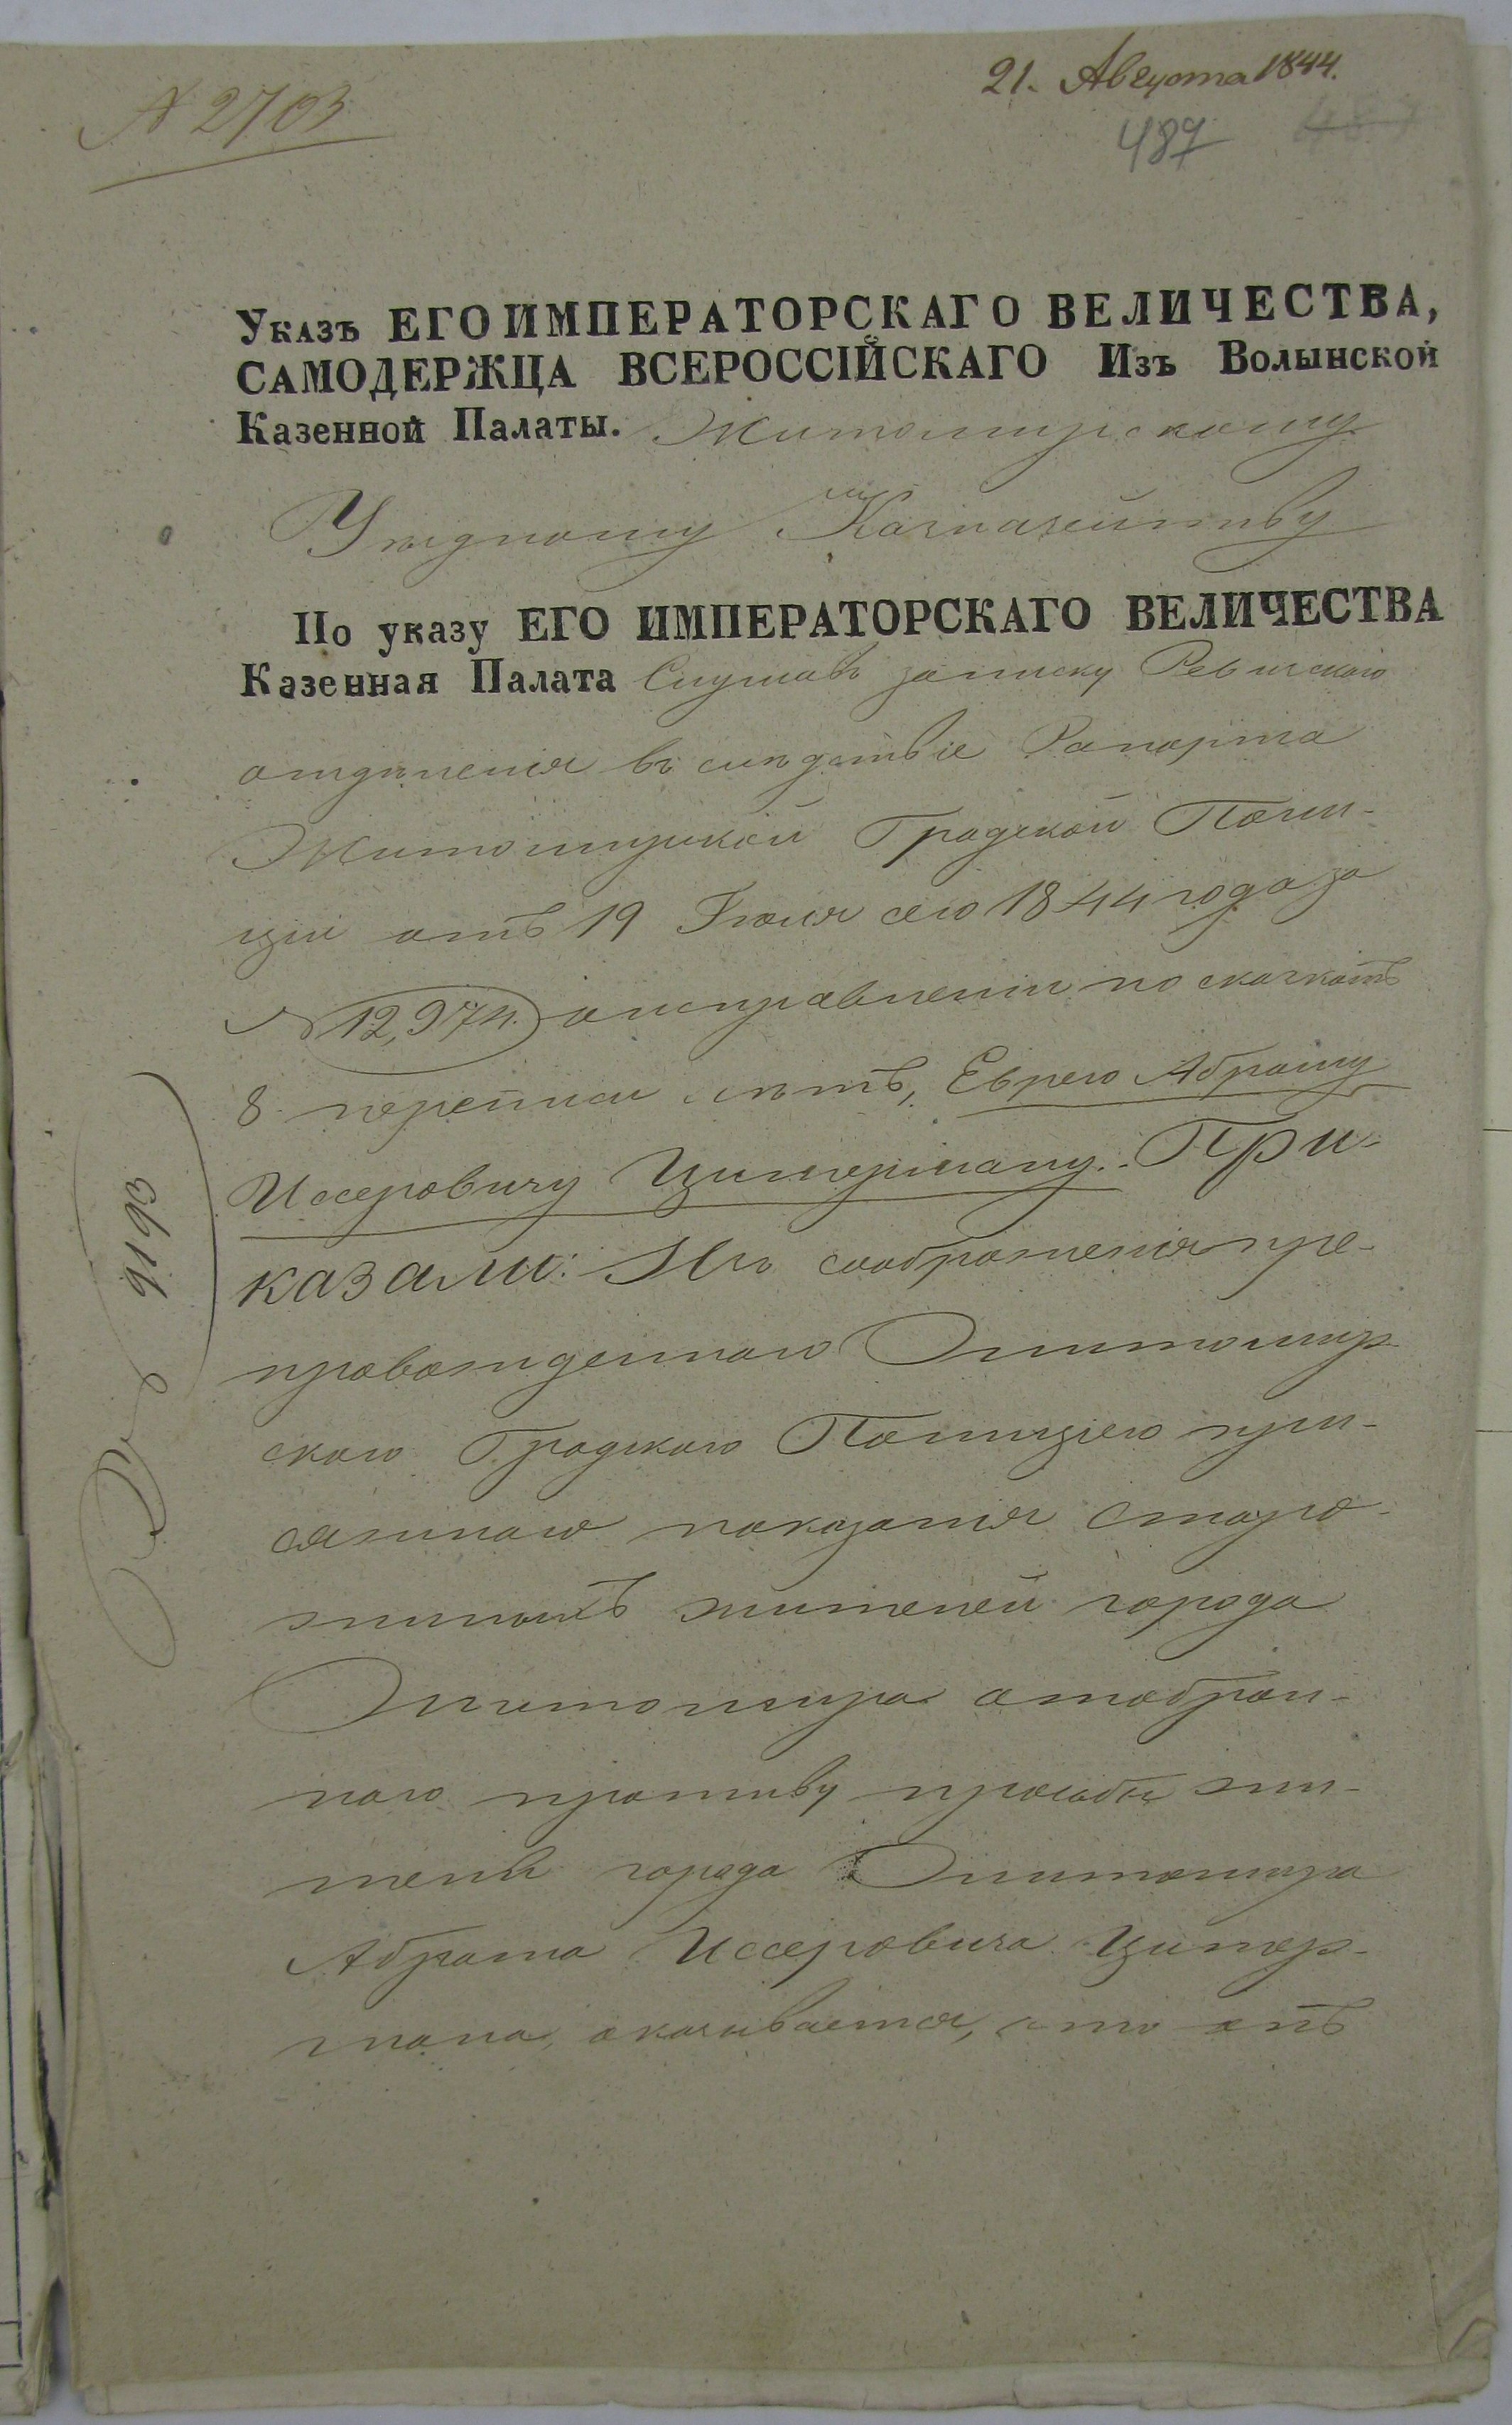 21. Августа 1844.
№ 2703
487
487
Указъ ЕГО ИМПЕРАТОРСКАГО ВЕЛИЧЕСТВА,
САМОДЕРЖЦА ВСЕРОССІЙСКАГО Изъ Волынской
Казенной Палаты. Житомирскому
Уѣздному Казначейству
По указу ЕГО ИМПЕРАТОРСКАГО ВЕЛИЧЕСТВА
Казенная Палата Слушавъ записку Ревизскаго
отдѣленія въ слѣдствіе Рапорта
Житомирской Градской Поли-
ціи отъ 19 Іюля сего 1844 года за
№ 12,974. о исправленіи по сказкамъ
8 переписи лѣтъ, Еврею Абраму
Иссеровичу Цимерману. При-
казали: Изъ соображенія пре-
провожденнаго Житомир-
скою Градскою Полиціею при-
сяжнаго показанія старо-
жилыхъ жителей города
Житомира отобран-
наго противу просьбы жи-
теля города Житомира
Абрама Иссеровича Цимер-
мана, оказывается, что онъ
9193